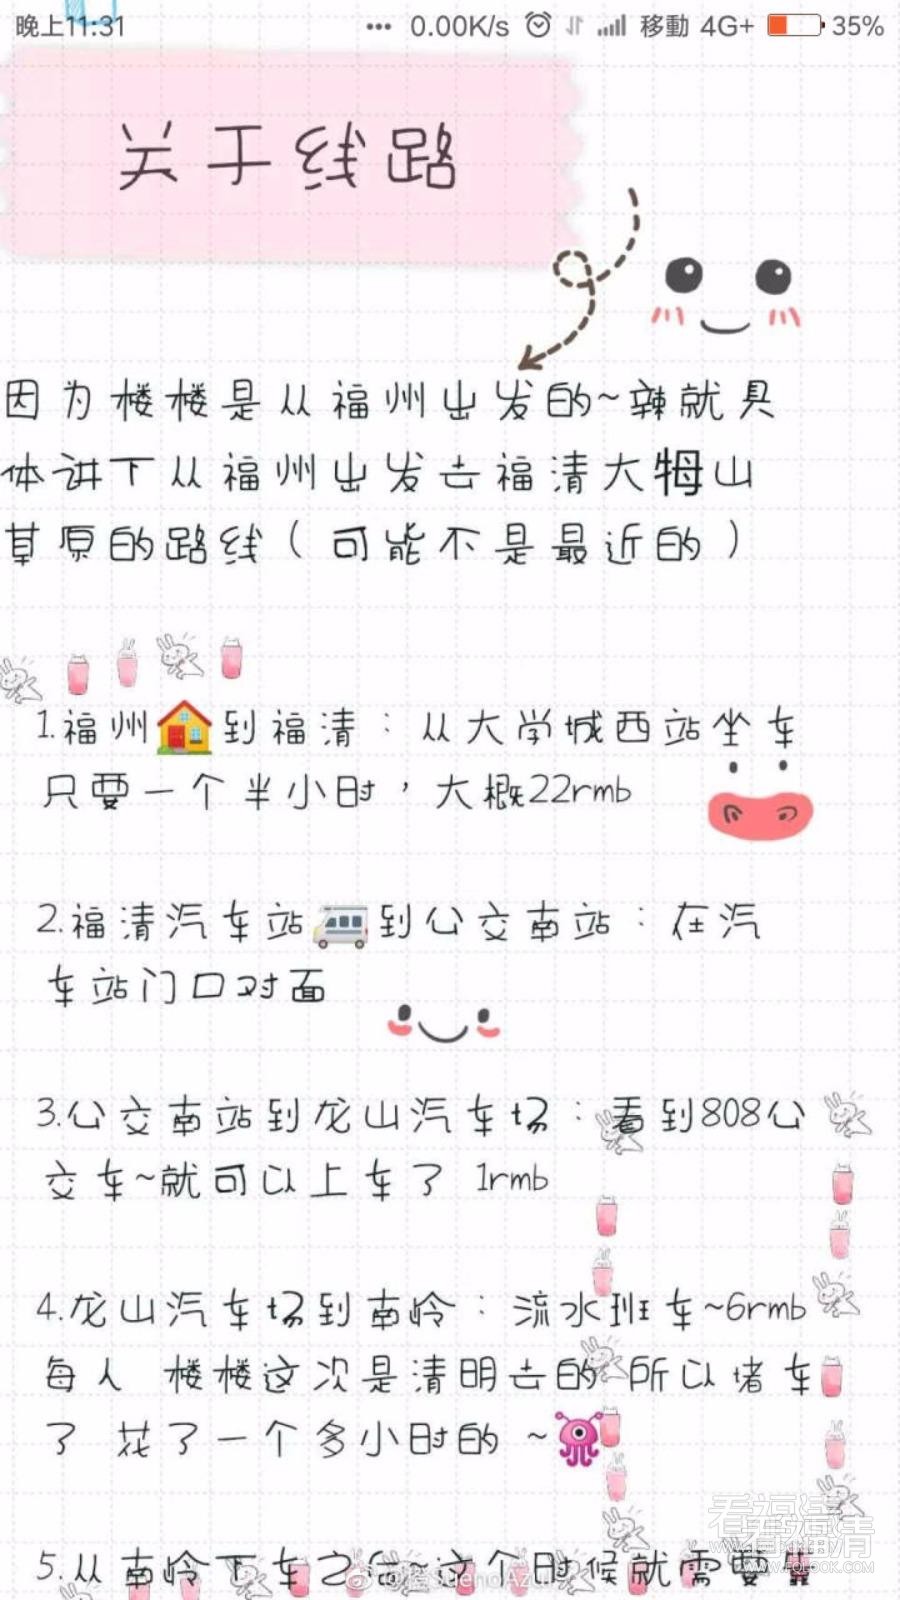 晚上11:31 ••• 0.00K/s 移動 4G+ 35%
关于线路
因为楼楼是从福州出发的~辣就具
体讲下从福州出发去福清大牳山
草原的路线（可能不是最近的）
1.福州到福清：从大学城西站坐车
只要一个半小时，大概22rmb
2.福清汽车站到公交南站：在汽
车站门口对面
3.公交南站到龙山汽车场：看到808公
交车~就可以上车了 1rmb
4.龙山汽车场到南岭：流水班车~6rmb
每人 楼楼这次是清明去的 所以堵车
了 花了一个多小时的 ~
5.从南岭下车之后~这个时候就需要
看福清
看福清
WWW.FQLOOK.COM